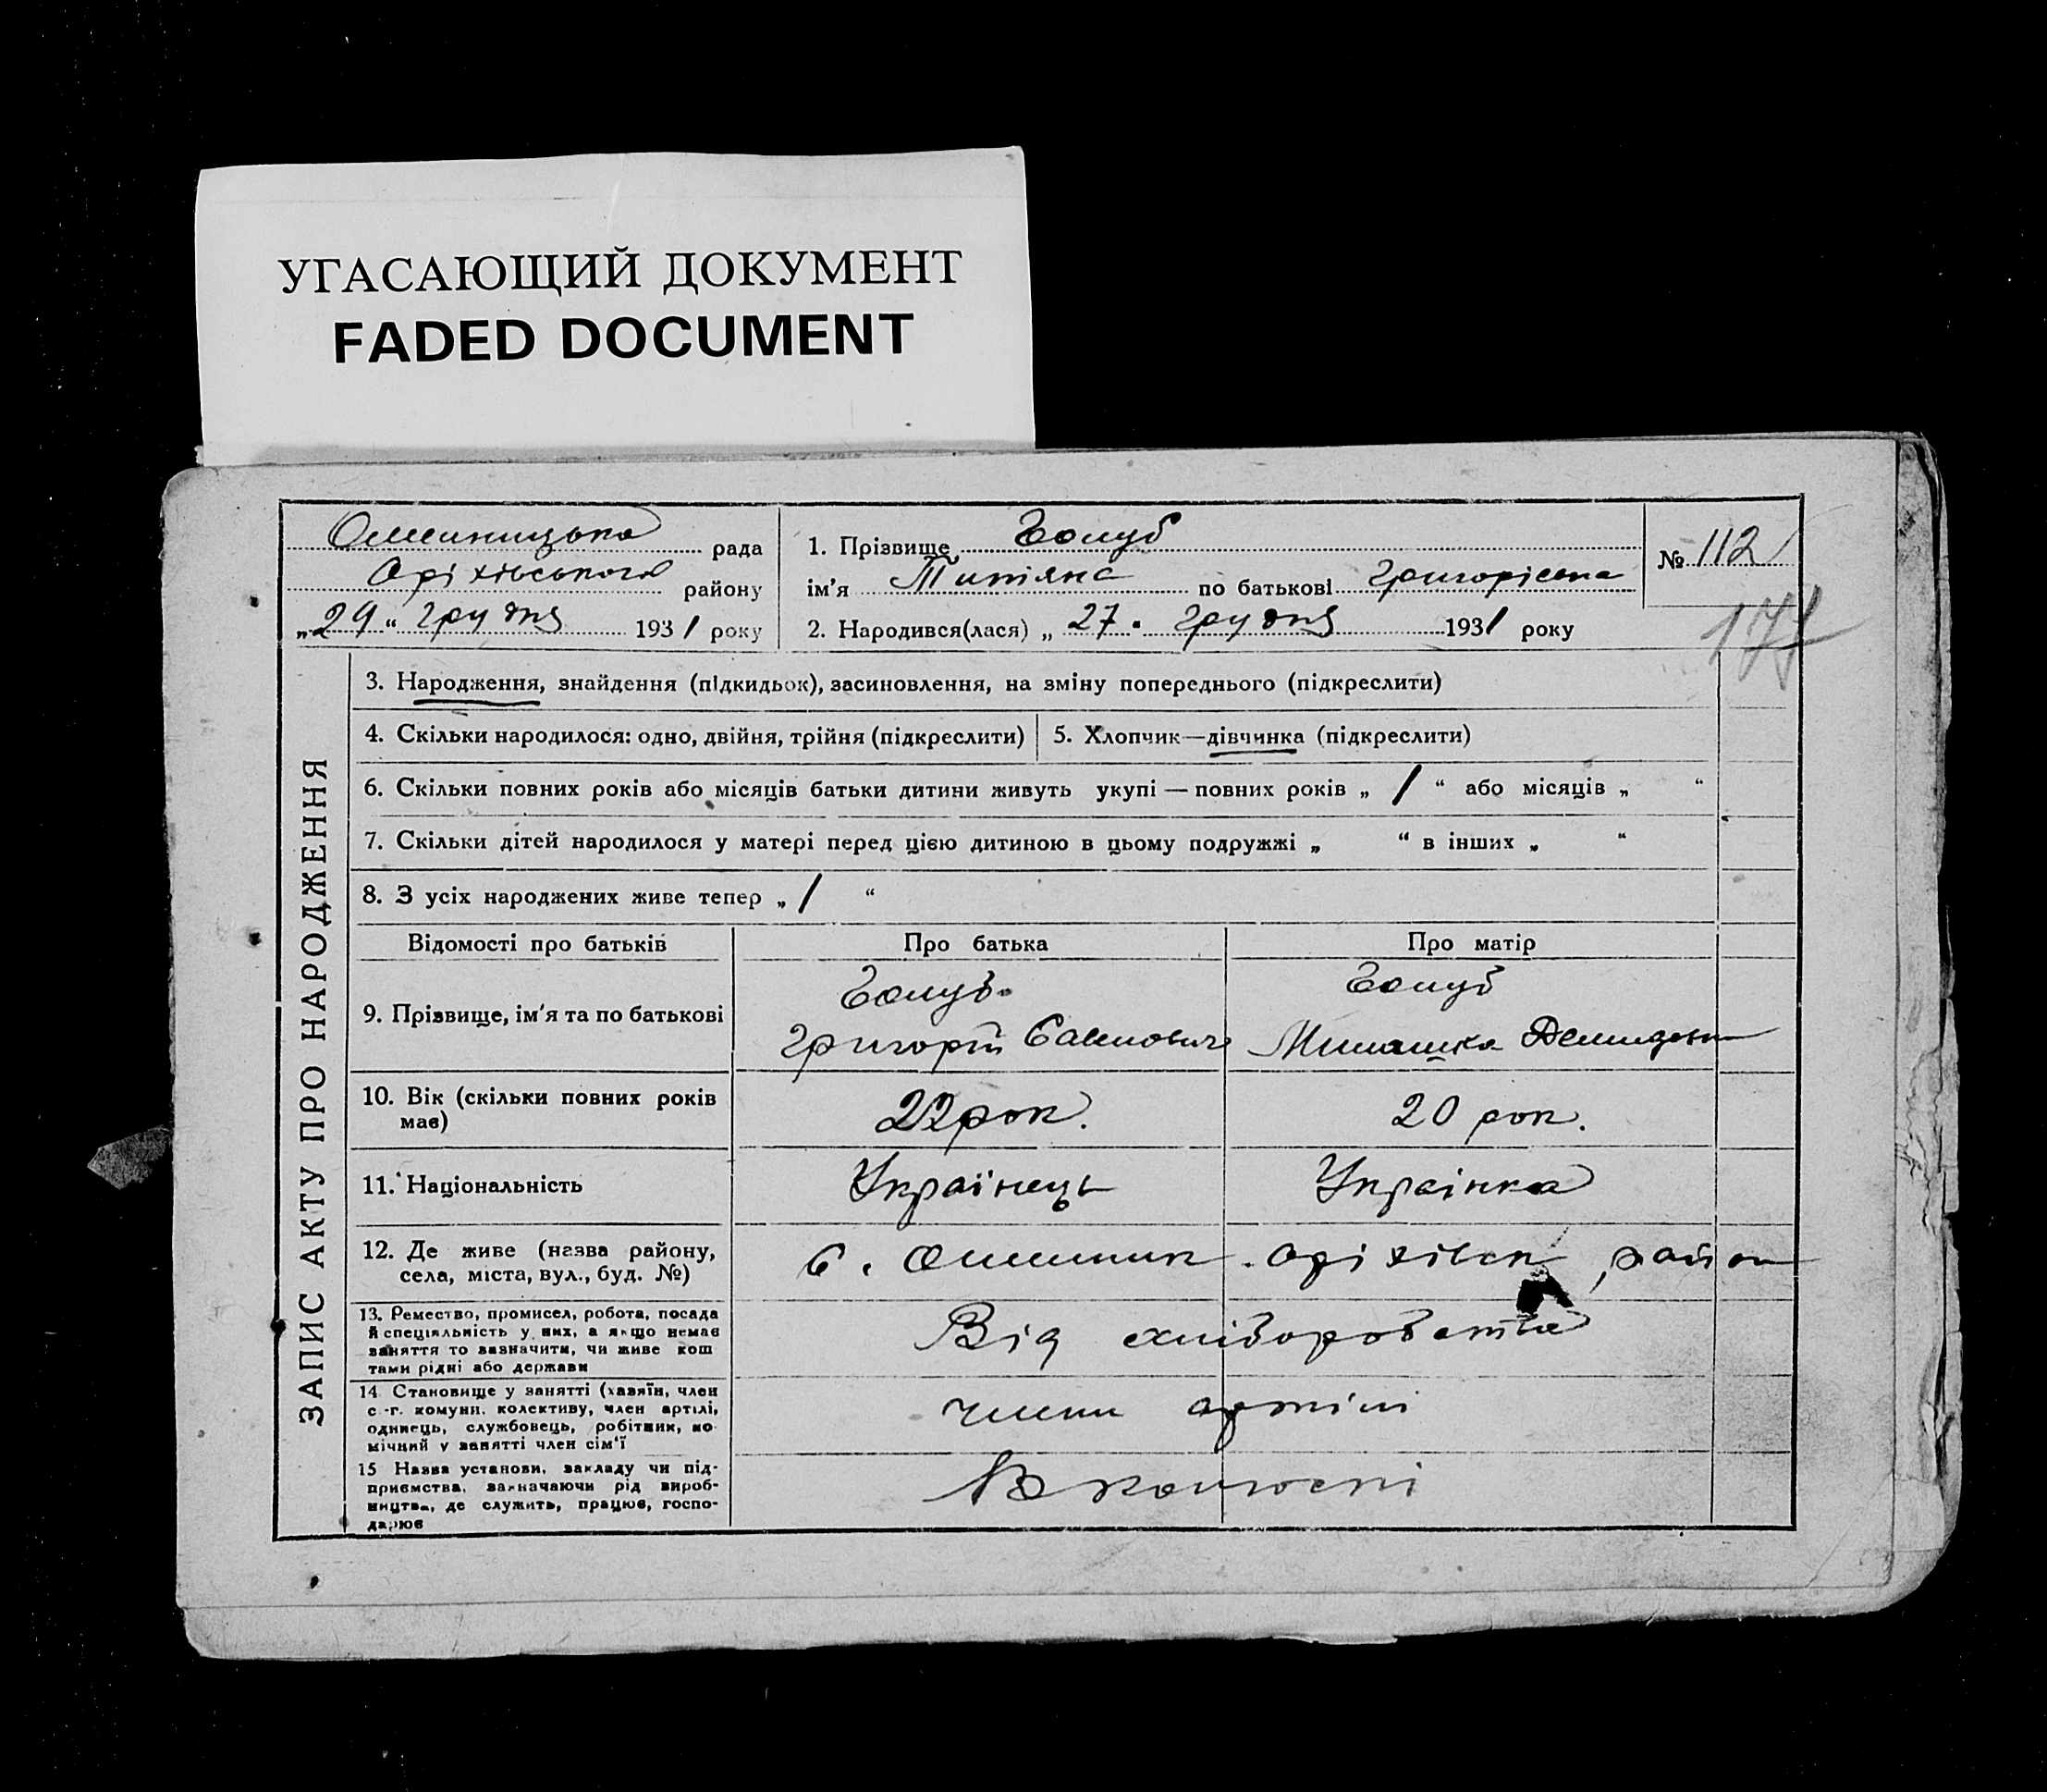 УГАСАЮЩИЙ ДОКУМЕНТ
FADED DOCUMENT
Омельницька рада
Оріхівського району
„29“ грудня 1931 року
1. Прізвище Голуб
ім'я Титяна по батькові Григорієвна
2. Народився(лася) „27. грудня 1931 року
№ 112
177
ЗАПИС АКТУ ПРО НАРОДЖЕННЯ
3. Народження, знайдення (підкидьок), засиновлення, на зміну попереднього (підкреслити)
4. Скільки народилося: одно, двійня, трійня (підкреслити)
5. Хлопчик—дівчинка (підкреслити)
6. Скільки повних років або місяців батьки дитини живуть укупі — повних років „ 1 “ або місяців „ “
7. Скільки дітей народилося у матері перед цією дитиною в цьому подружжі „ “ в інших „ “
8. З усіх народжених живе тепер „ 1 “
Відомості про батьків
Про батька
Про матір
9. Прізвище, ім'я та по батькові
Голуб
Григорій Савелович
Голуб
Демидовн
10. Вік (скільки повних років
має)
22 рок.
20 рок.
11. Національність
Українець
Українка
12. Де живе (назва району,
села, міста, вул., буд. №)
с. Омельник. Оріхівськ район
13. Ремество, промисел, робота, посада
й спеціяльність у них, а якщо немає
заняття то зазначити, чи живе кош
тами рідні або держави
Від хліборобства
14 Становище у занятті (хазяїн, член
с.-г. комуни, колективу, член артілі,
одинець, службовець, робітник, по
мічний у занятті член сім'ї
члени артілі
15 Назва установи, закладу чи під-
приємства, зазначаючи рід вироб-
ництва, де служить, працює, госпо-
дарює
В колгоспі